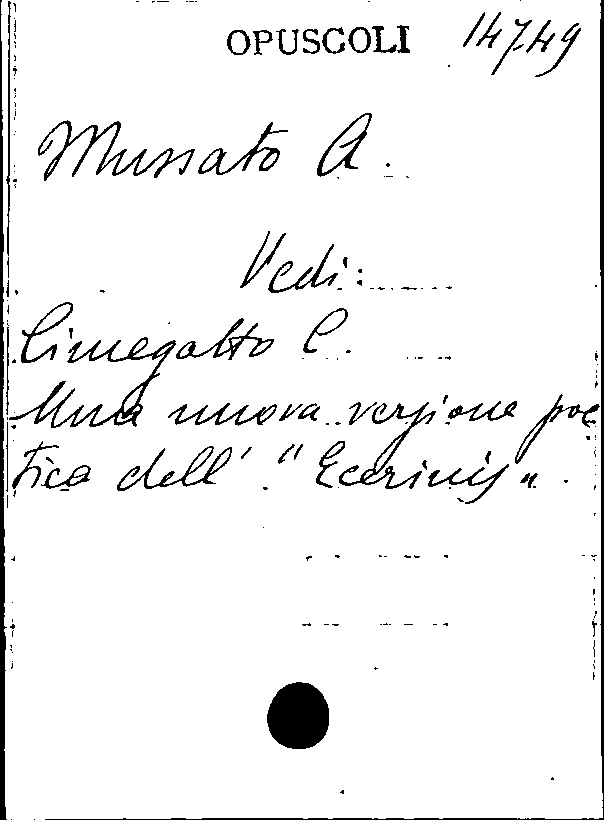 OPUSCOLI 14749
Mussato A.
Vedi:
Cimegotto C.
Una nuova versione poe
tica dell' "Ecerinis".